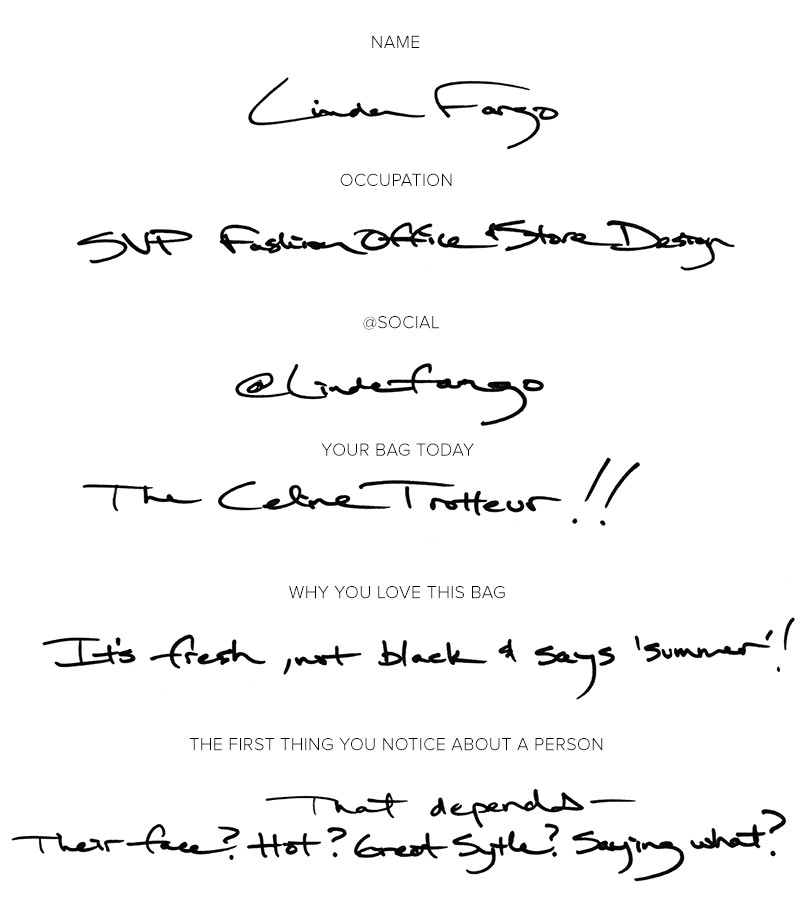 NAME
Linda Fargo
OCCUPATION
SVP Fashion Office & Store Design
@SOCIAL
@lindafargo
YOUR BAG TODAY
The Celine Trotteur!!
WHY YOU LOVE THIS BAG
It's fresh, not black & says 'summer'!
THE FIRST THING YOU NOTICE ABOUT A PERSON
That depends—
Their face? Hot? Great Sytle? Saying what?